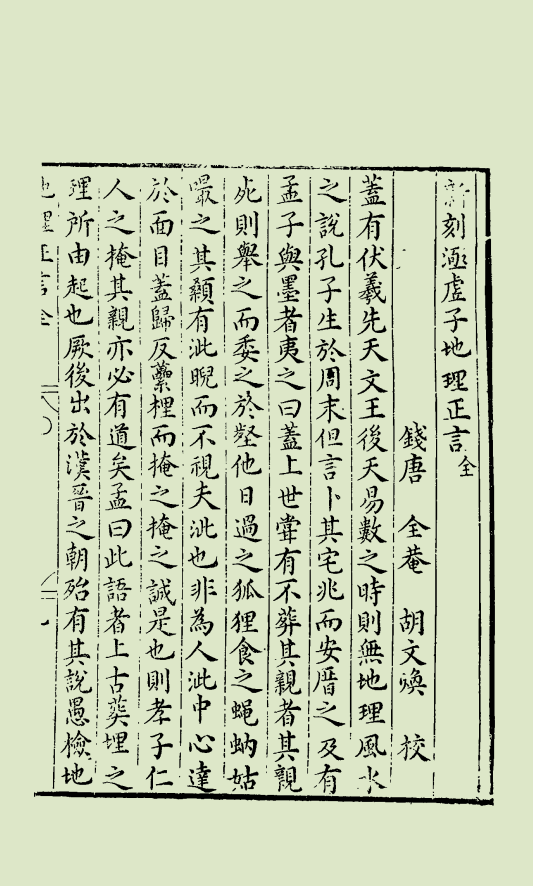 新刻㴐虛子地理正言 全
錢唐 全菴 胡文煥 校
蓋有伏羲先天文王後天易數之時則無地理風水
之說孔子生於周末但言卜其宅兆而安厝之及有
孟子與墨者夷之曰蓋上世甞有不葬其親者其親
死則舉之而委之於壑他日過之狐狸食之蝇蚋姑
嘬之其顙有泚睨而不視夫泚也非為人泚中心達
於面目蓋歸反虆梩而掩之掩之誠是也則孝子仁
人之掩其親亦必有道矣孟曰此語者上古葬埋之
理所由起也厥後出於漢晉之朝殆有其說愚檢地
地理正言全